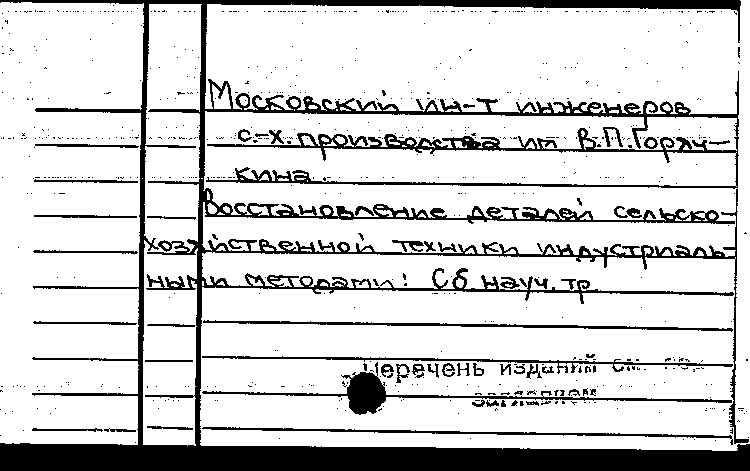 Московский ин-т инженеров
с.-х. производства им В.П.Горяч-
кина.
Восстановление деталей сельско-
хозяйственной техники индустриаль-
ными методами: Сб науч. тр.
Перечень изданий см. под
заглавием